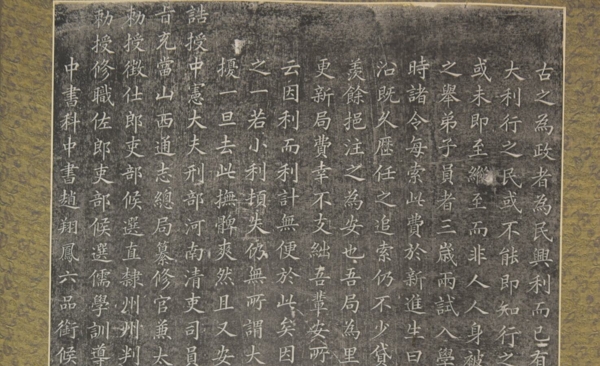 古之為政者為民興利而已有
大利行之民或不能即知行之
或未即至縱至而非人人身被
之舉弟子員者三歲兩試入學
時諸令每索此費於新進生曰
沿既久歷任之追索仍不少貸
羨餘挹注之為安也吾局為里
更新局費幸不支絀吾輩安所
云因利而利計無便於此矣因
之一若小利損失仍無所謂大
擾一旦去此撫髀爽然且又安
誥授中憲大夫刑部河南清吏司員
旨充當山西通志總局纂修官兼太
勅授徵仕郎吏部候選直隸州州判
勅授修職佐郎吏部候選儒學訓導
中書科中書趙翔鳳六品銜候